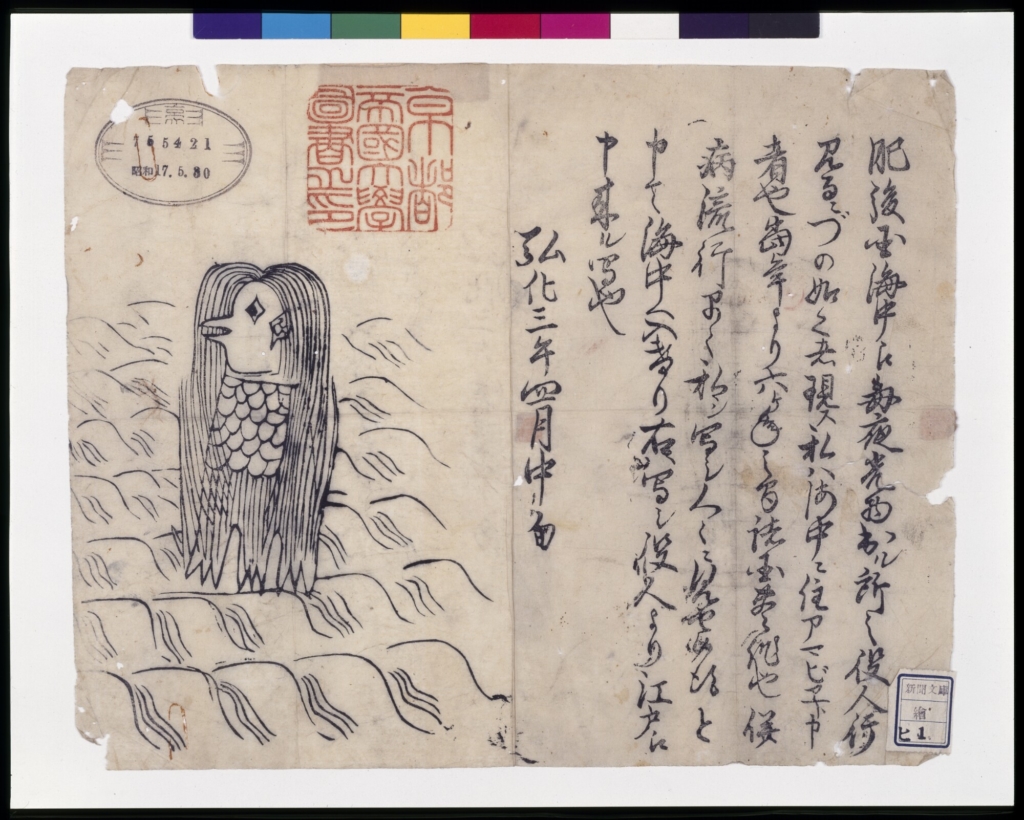 肥後国海中え毎夜光物出ル所之役人行
見るニづの如く者現ス私ハ海中ニ住アマビヱト申
者也当年より六ヶ年之間諸国豊作也併
病流行早々私ヲ写シ人々ニ見せ候得と
申て海中へ入けり右写シ役人より江戸え
申来ル写也
弘化三年四月中旬
京都
帝國大學
圖書之印
昭和17.5.30
新聞文庫
繪
ヒ 1.